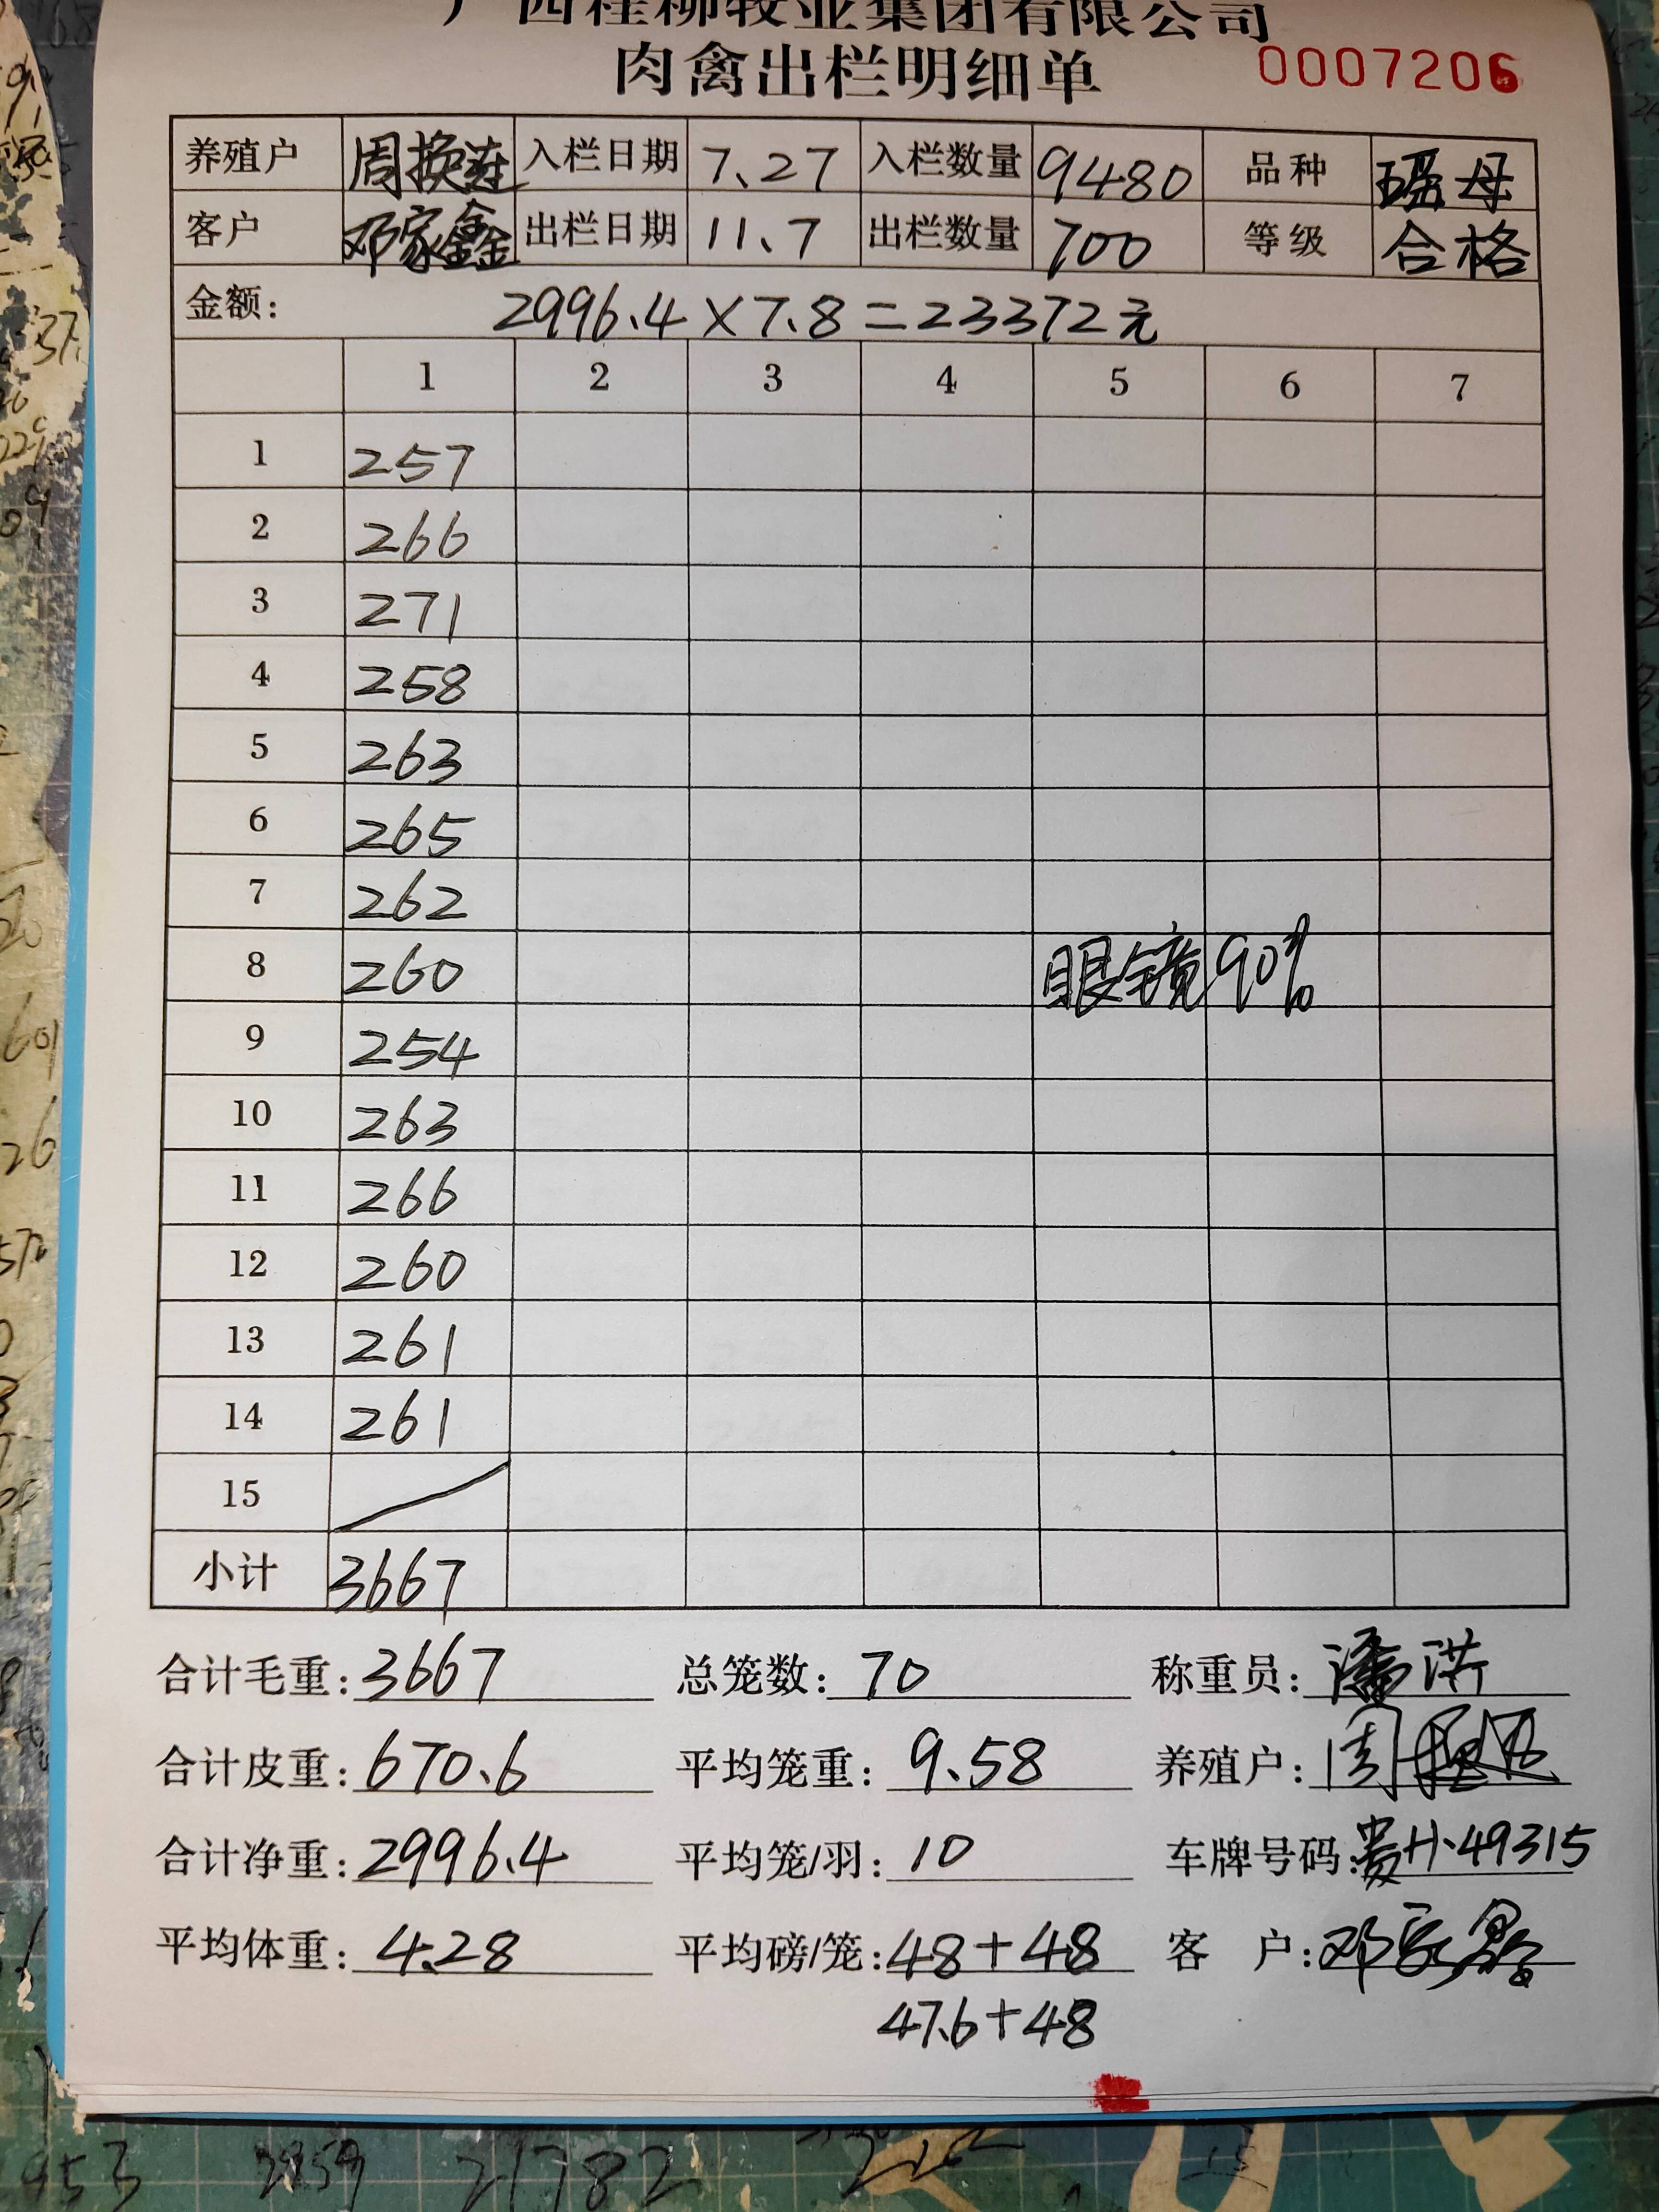 广西桂柳牧业集团有限公司
肉禽出栏明细单 0007206
养殖户 周换连 入栏日期 7.27 入栏数量 9480 品种 瑶母
客户 邓家鑫 出栏日期 11.7 出栏数量 700 等级 合格
金额: 2996.4×7.8=23372元
1 2 3 4 5 6 7
1 257
2 266
3 271
4 258
5 263
6 265
7 262
8 260 眼镜90%
9 254
10 263
11 266
12 260
13 261
14 261
15
小计 3667
合计毛重:3667 总笼数:70 称重员:潘洪
合计皮重:670.6 平均笼重:9.58 养殖户:周换连
合计净重:2996.4 平均笼/羽:10 车牌号码:贵H·49315
平均体重:4.28 平均磅/笼:48+48 客 户:邓家鑫
47.6+48
953 2959 21782